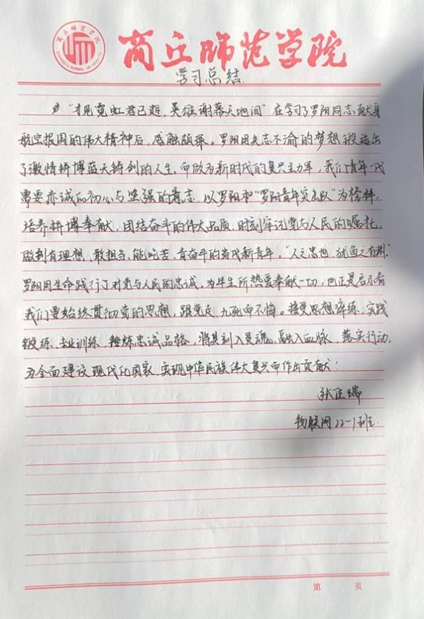 商丘师范学院
学习总结
"才见霓虹君已逝,英雄谢幕天地间"在学习了罗阳同志献身
航空报国的伟大精神后,感触颇深。罗阳用矢志不渝的梦想锻造出
了激情拼搏蓝天铸剑的人生。而做为新时代的复兴主力军,我们青年一代
需要赤诚的初心与坚强的意志,以罗阳和"罗阳青年突击队"为榜样,
培养拼搏奉献、团结奋斗的伟大品质,时刻牢记党与人民的嘱托,
做到有理想、敢担当、能吃苦、肯奋斗的当代新青年,"人之忠也,犹鱼之有渊"
罗阳用生命践行了对党与人民的忠诚,为毕生所热爱奉献一切,也正是启示着
我们要始终贯彻党的思想,跟党走,九死而不悔,接受思想淬炼、实践
锻炼、专业训练,忠诚品格,将其刻入灵魂,融入血脉,落实行动,
为全面建设现代化国家,实现中华民族伟大复兴而作出贡献!
张瑞
物联网22-1班
第 页